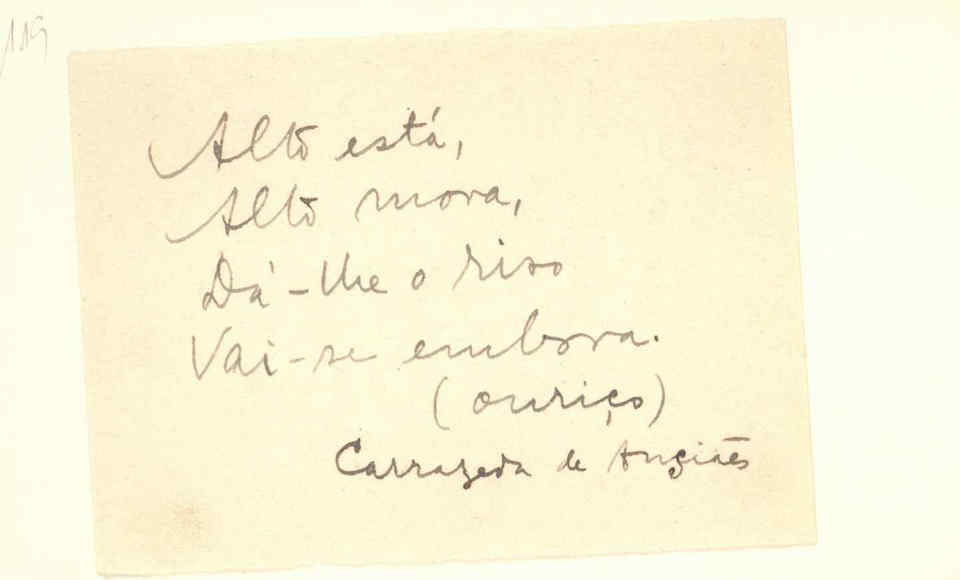 119
Alto está,
Alto mora,
Dá-lhe o riso
Vai-se embora.
(ouriço)
Carrazeda de Anciães